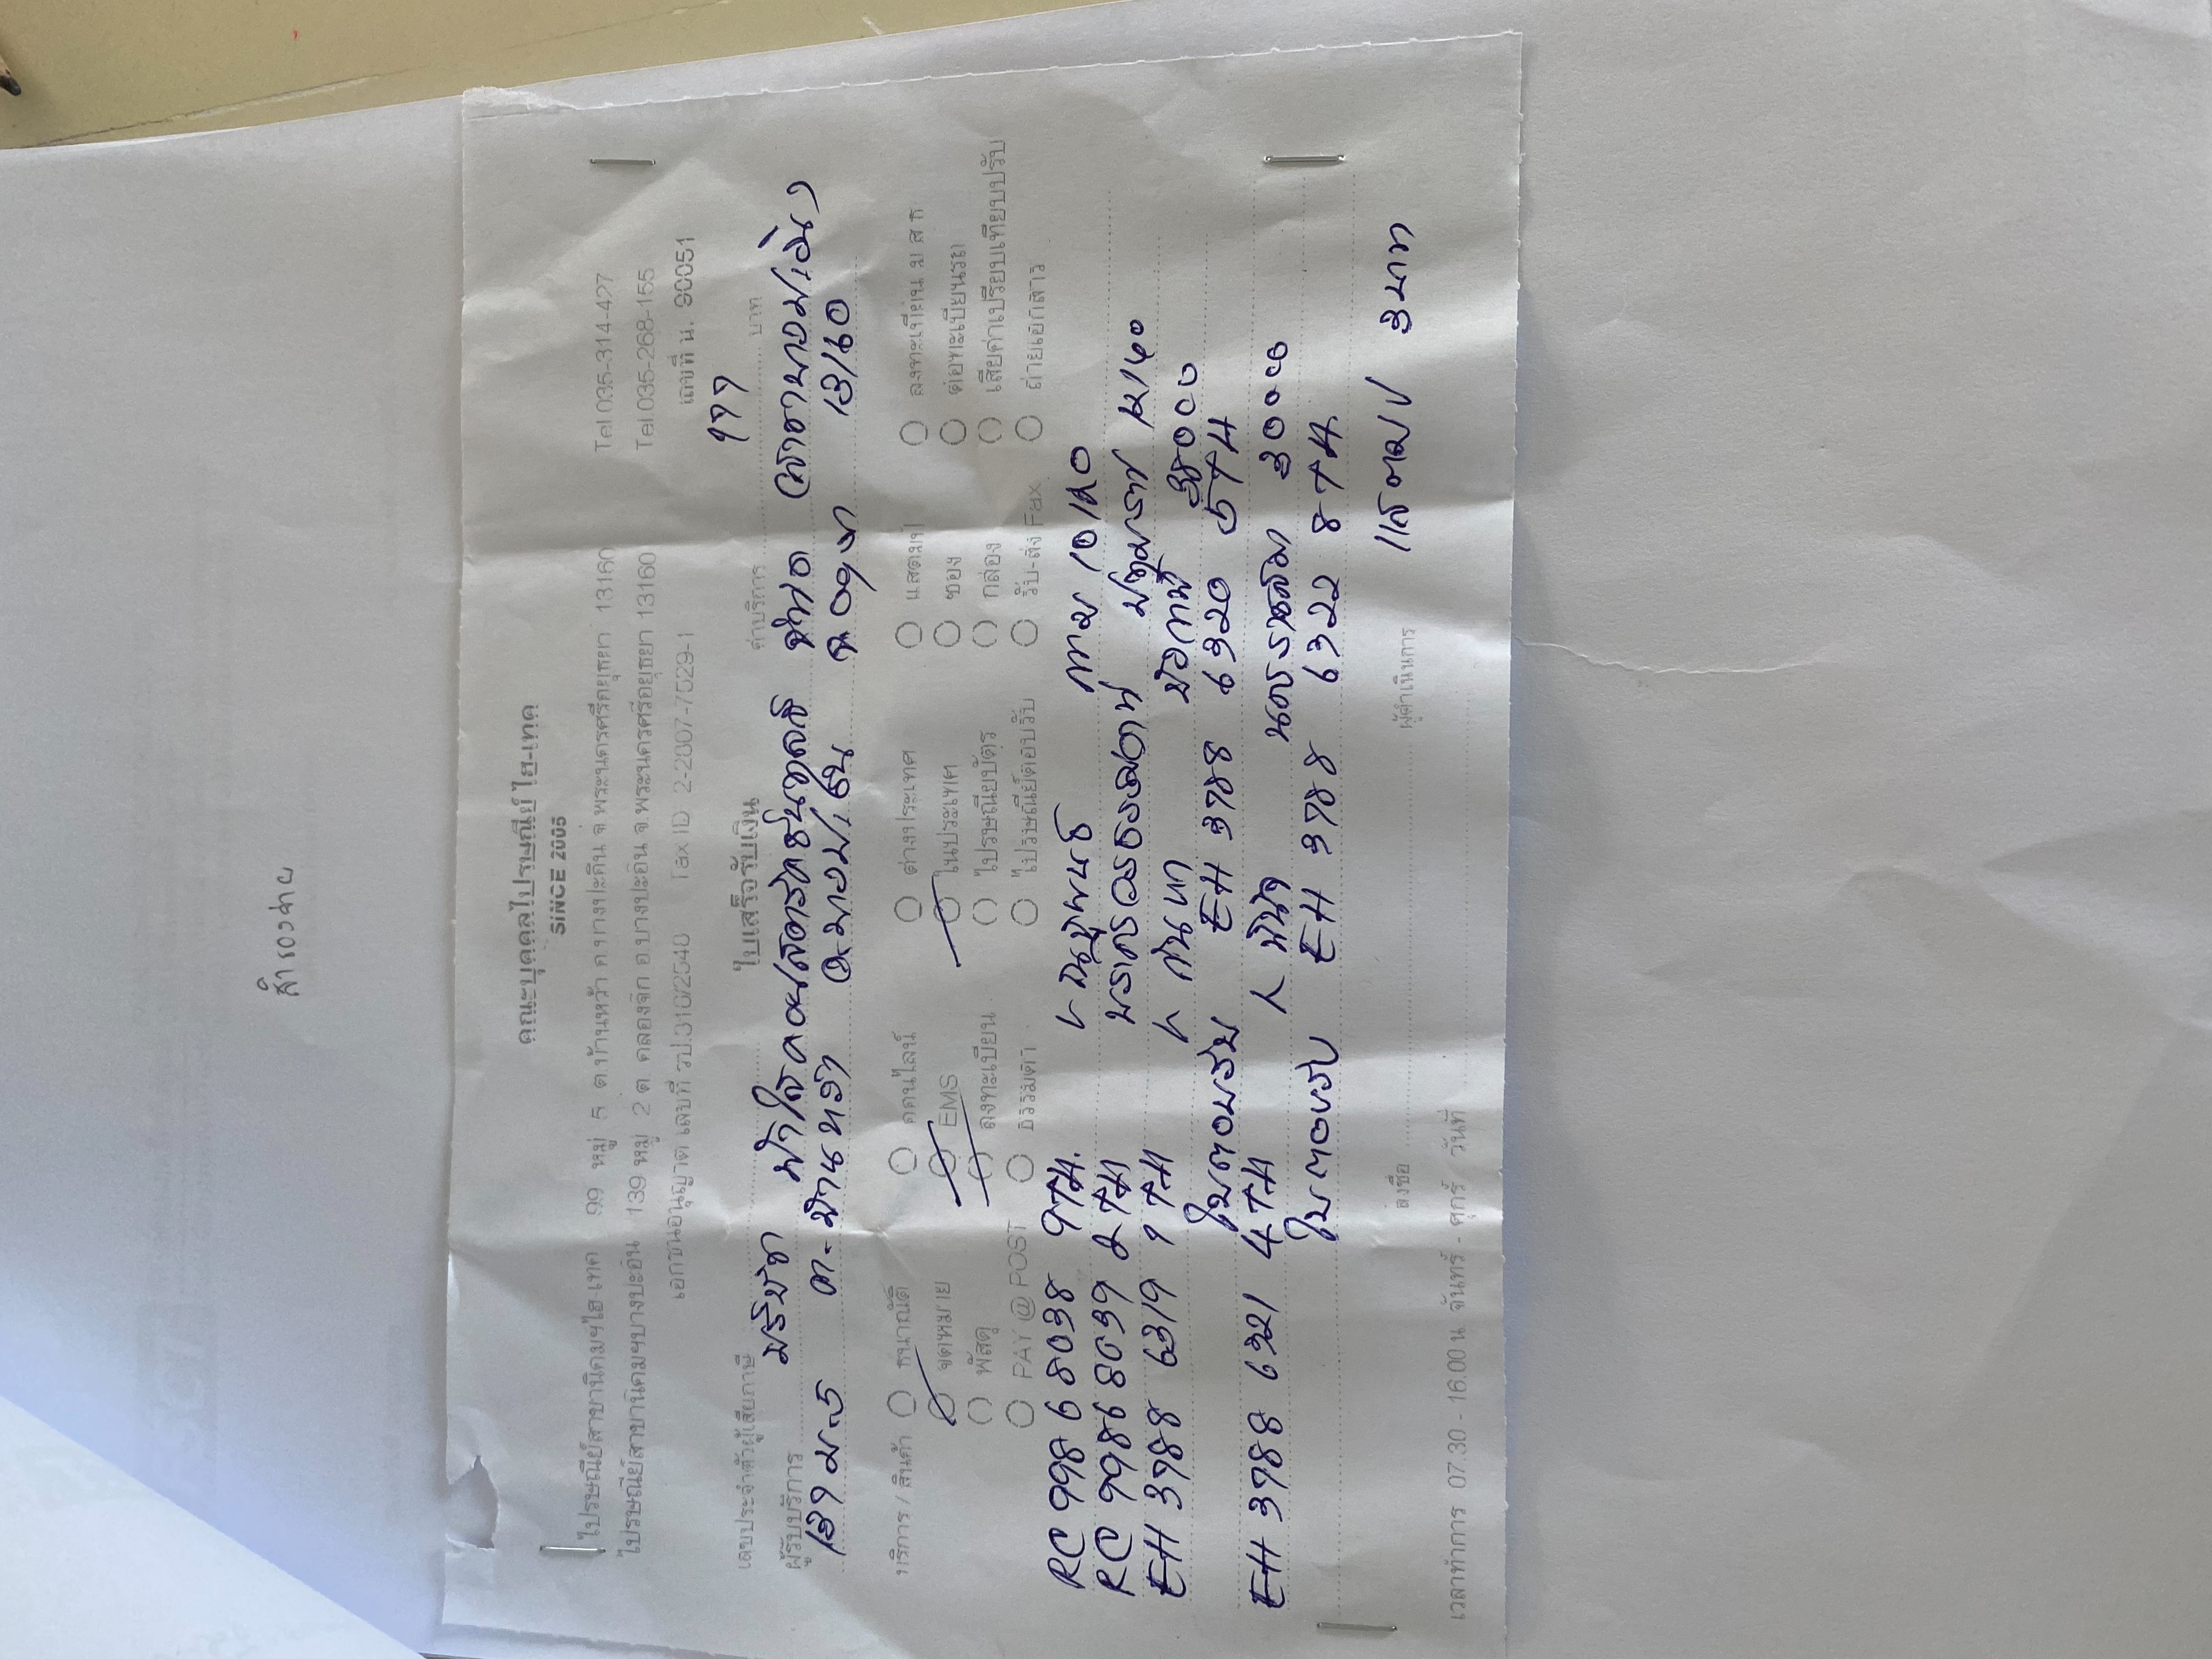 สำรองจ่าย
คณะบุคคลไปรษณีย์ ไฮ-เทค
SINCE 2005
ไปรษณีย์สาขานิคมฯไฮ-เทค 99 หมู่ 5 ต.บ้านหว้า อ.บางปะอิน จ.พระนครศรีอยุธยา 13160 Tel.035-314-427
ไปรษณีย์สาขานิคมฯบางปะอิน 139 หมู่ 2 ต. คลองจิก อ.บางปะอิน จ.พระนครศรีอยุธยา 13160 Tel.035-268-155
เอกชนอนุญาต เลขที่ รป.316/2540 Tax ID 2-2007-7529-1 เลขที่ น. 90051
เลขประจำตัวผู้เสียภาษี ใบเสร็จรับเงิน ค่าบริการ 177 บาท
ผู้รับบริการ บริษัท ฟ้าใสคอนสตรัคชั่น จำกัด (สาขาบางปะอิน)
ม.5 ต.บ้านหว้า อ.บางปะอิน จ.อยุธยา 13160
บริการ / สินค้า ธนาณัติ ออนไลน์ ต่างประเทศ แสตมป์ ลงทะเบียน ม ส ธ
จดหมาย EMS ในประเทศ ซอง ต่อทะเบียนรถ
พัสดุ ลงทะเบียน ไปรษณียบัตร กล่อง เสียค่าเปรียบเทียบปรับ
PAY @ POST ธรรมดา ไปรษณีย์ตอบรับ รับ-ส่ง Fax ถ่ายเอกสาร
RC 998 6 8038 9TH. 10120
RC 9986 8039 2TH 12140
EH 3788 6319 1TH 38000
ใบตอบรับ EH 3788 6320 5TH
EH 3788 6321 4TH พินิจ นครราชสีมา 30000
ใบตอบรับ EH 3788 6322 8TH
ลงชื่อ ผู้ดำเนินการ แสตมป์ 3 บาท
เวลาทำการ 07.30 - 16.00 น. จันทร์ - ศุกร์ วันที่